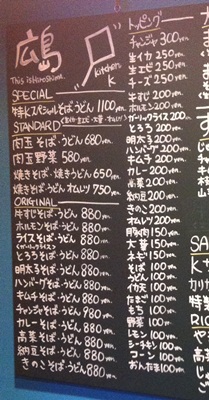 広島
This is Hiroshima.
kitchen
K
SPECIAL
特Kスペシャルそば・うどん 1100yen
STANDARD
肉玉そば・うどん 680yen
肉玉野菜 580yen
焼きそば・焼きうどん 650yen
焼きそば・うどん オムソバ 750yen
ORIGINAL
牛すじそば・うどん 880yen
ホルモンそば・うどん 880yen
ライスそば・うどん 880yen
とろろそば・うどん 880yen
明太子そば・うどん 880yen
ハンバーグそば・うどん 880yen
キムチそば・うどん 880yen
チャンジャそば・うどん 980yen
カレーそば・うどん 880yen
高菜そば・うどん 880yen
納豆そば・うどん 880yen
きのこそば・うどん 880yen
トッピング
チャンジャ 300yen
生イカ 250yen
生エビ 250yen
チーズ 250yen
牛すじ 200yen
ホルモン 200yen
ガーリックライス 200yen
とろろ 200yen
明太子 200yen
ハンバーグ 200yen
キムチ 200yen
カレー 200yen
高菜 200yen
納豆 200yen
きのこ 200yen
オムソバ 200yen
豚肉 150yen
大葉 150yen
ネギ 150yen
そば 100yen
うどん 100yen
イカ天 100yen
たまご 100yen
もち 100yen
野菜 100yen
レモン 100yen
シーチキン 100yen
コーン 100yen
おんたま 100yen